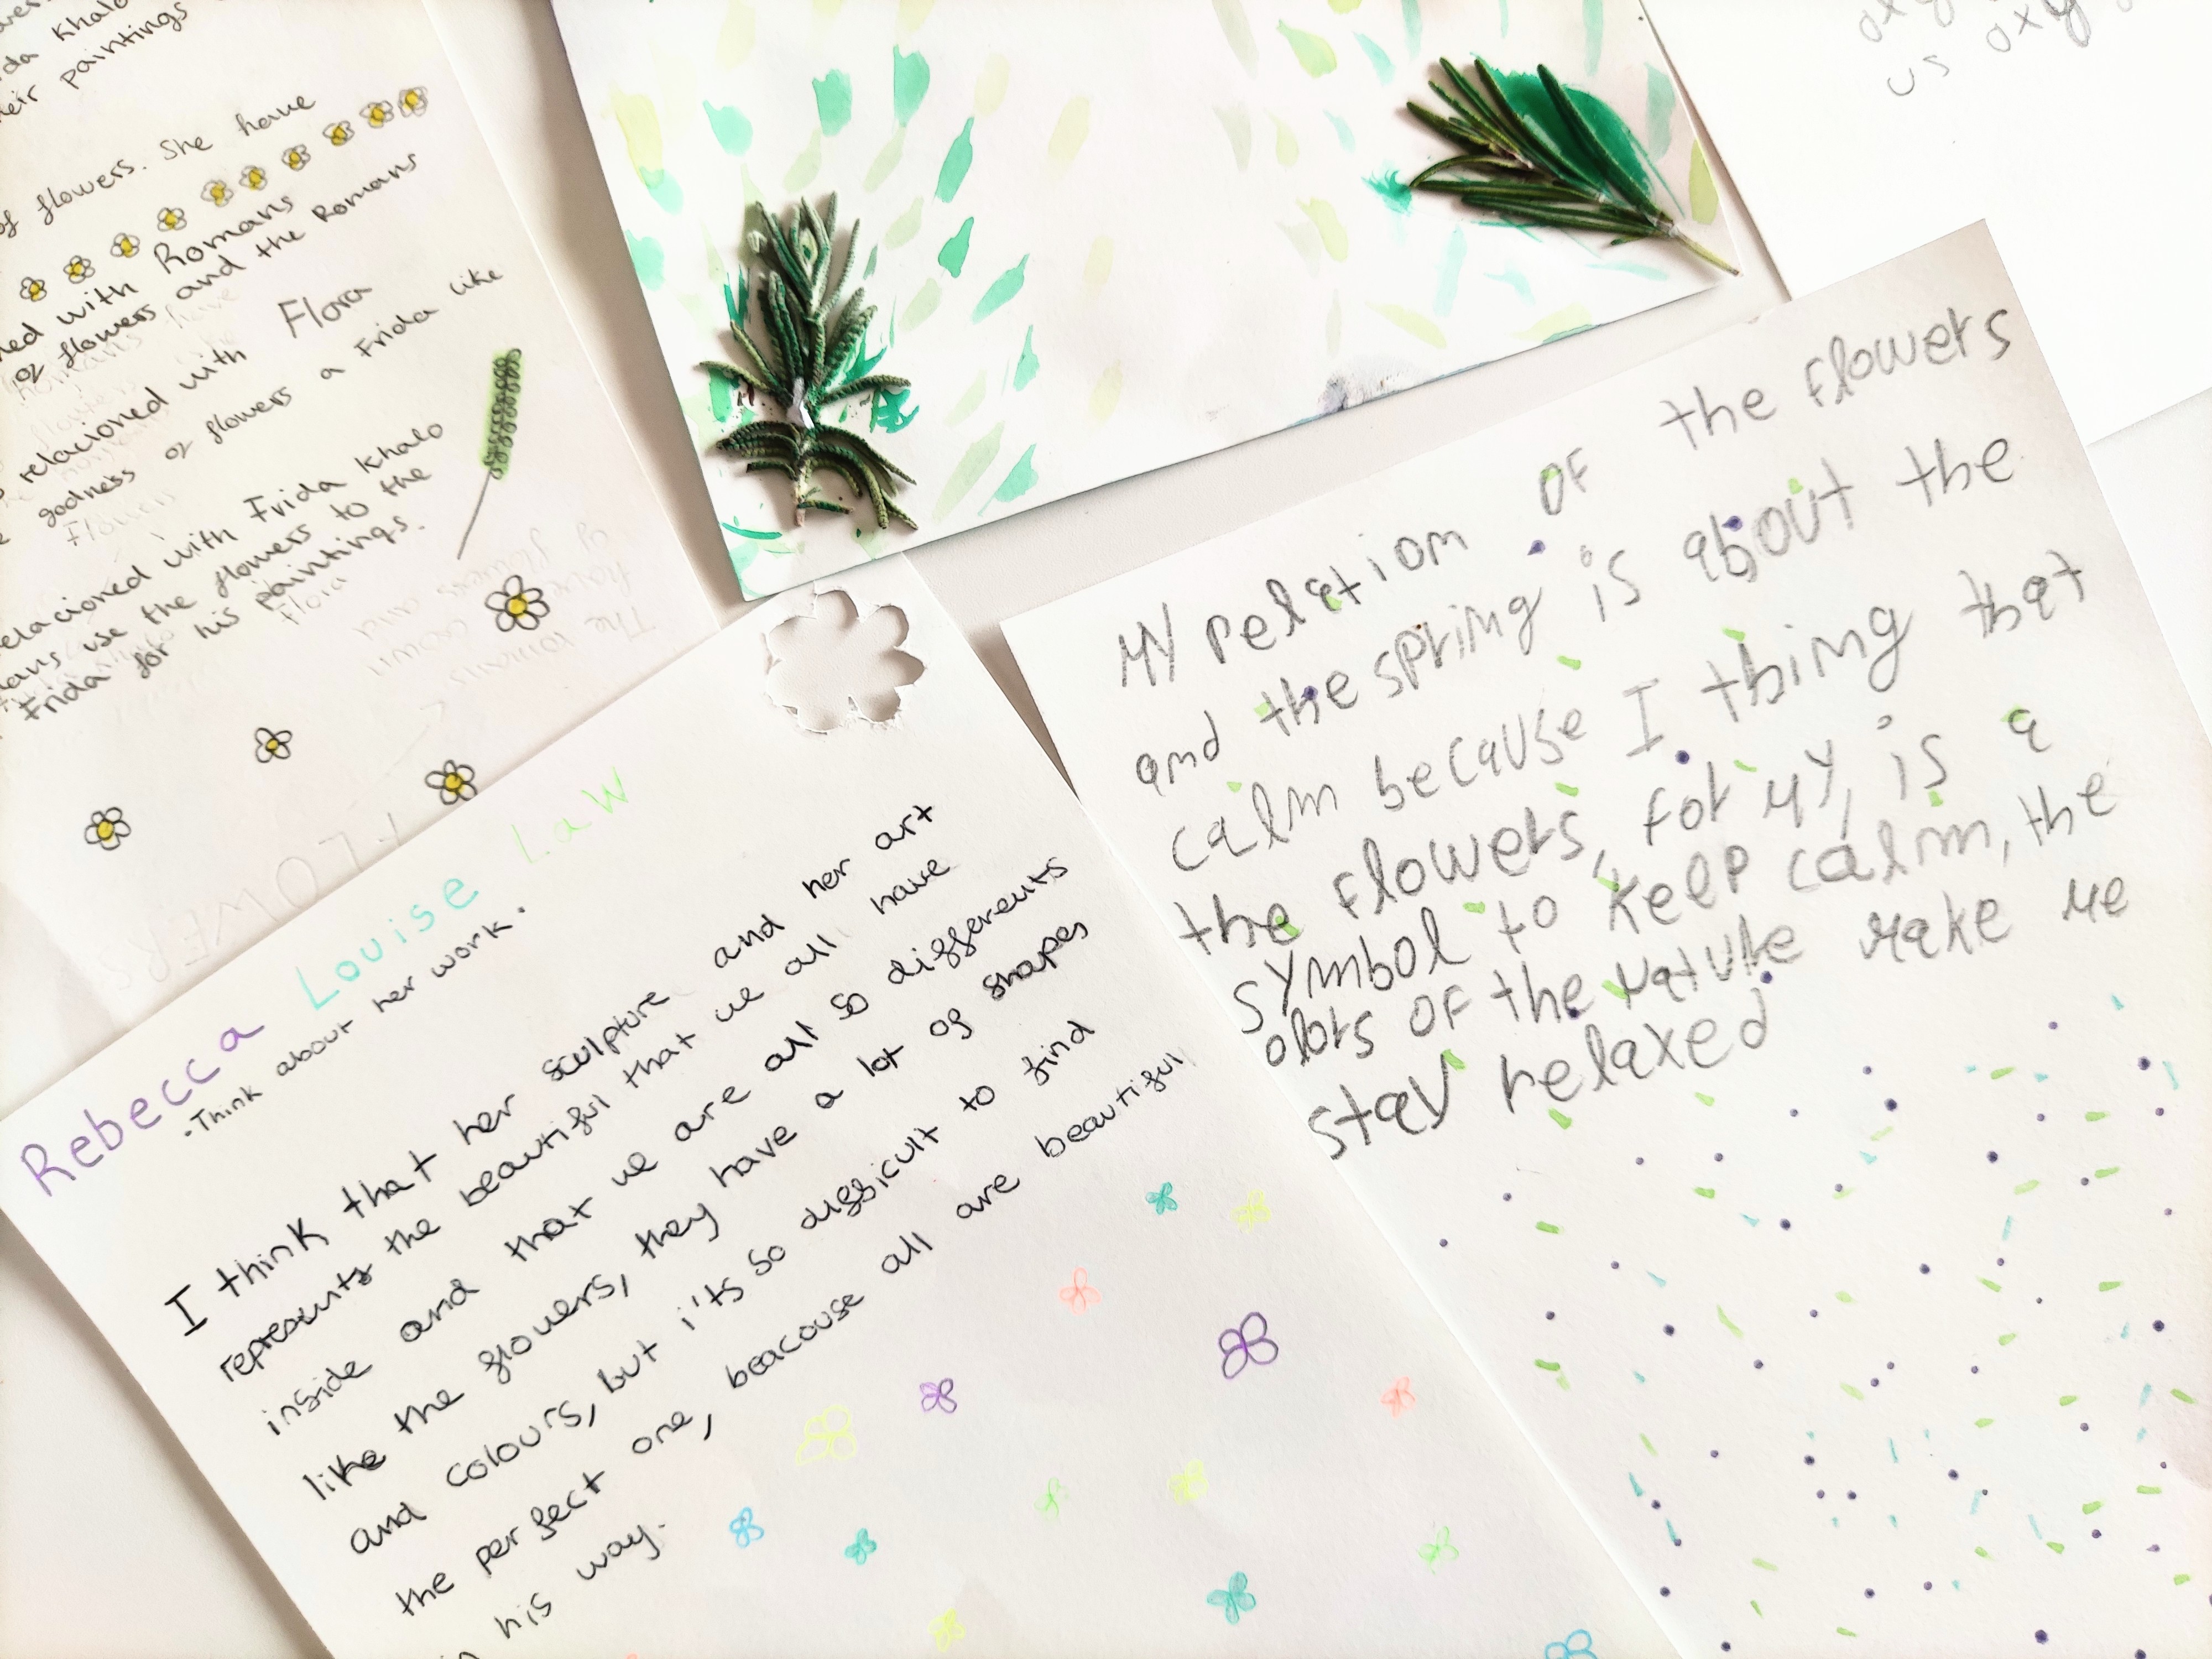 Khalo
paintings
of flowers. She have
with Romans
of flowers and the Romans
relacioned with Flora
goodness of flowers a Frida like
relacioned with Frida Khalo
use the flowers to the
Frida for his paintings.
Flora
FLOWERS
us
Rebecca Louise Law
·Think about her work.
I think that her sculpture and her art
represents the beautiful that we all have
inside and that we are all so differents
like the flowers, they have a lot of shapes
and colours, but i'ts so difficult to find
the perfect one, beacouse all are beautiful
his way.
My relation OF the flowers
and the spring is about the
calm because I thing that
the flowers, for my, is a
symbol to keep calm, the
olors OF the nature make me
stay relaxed